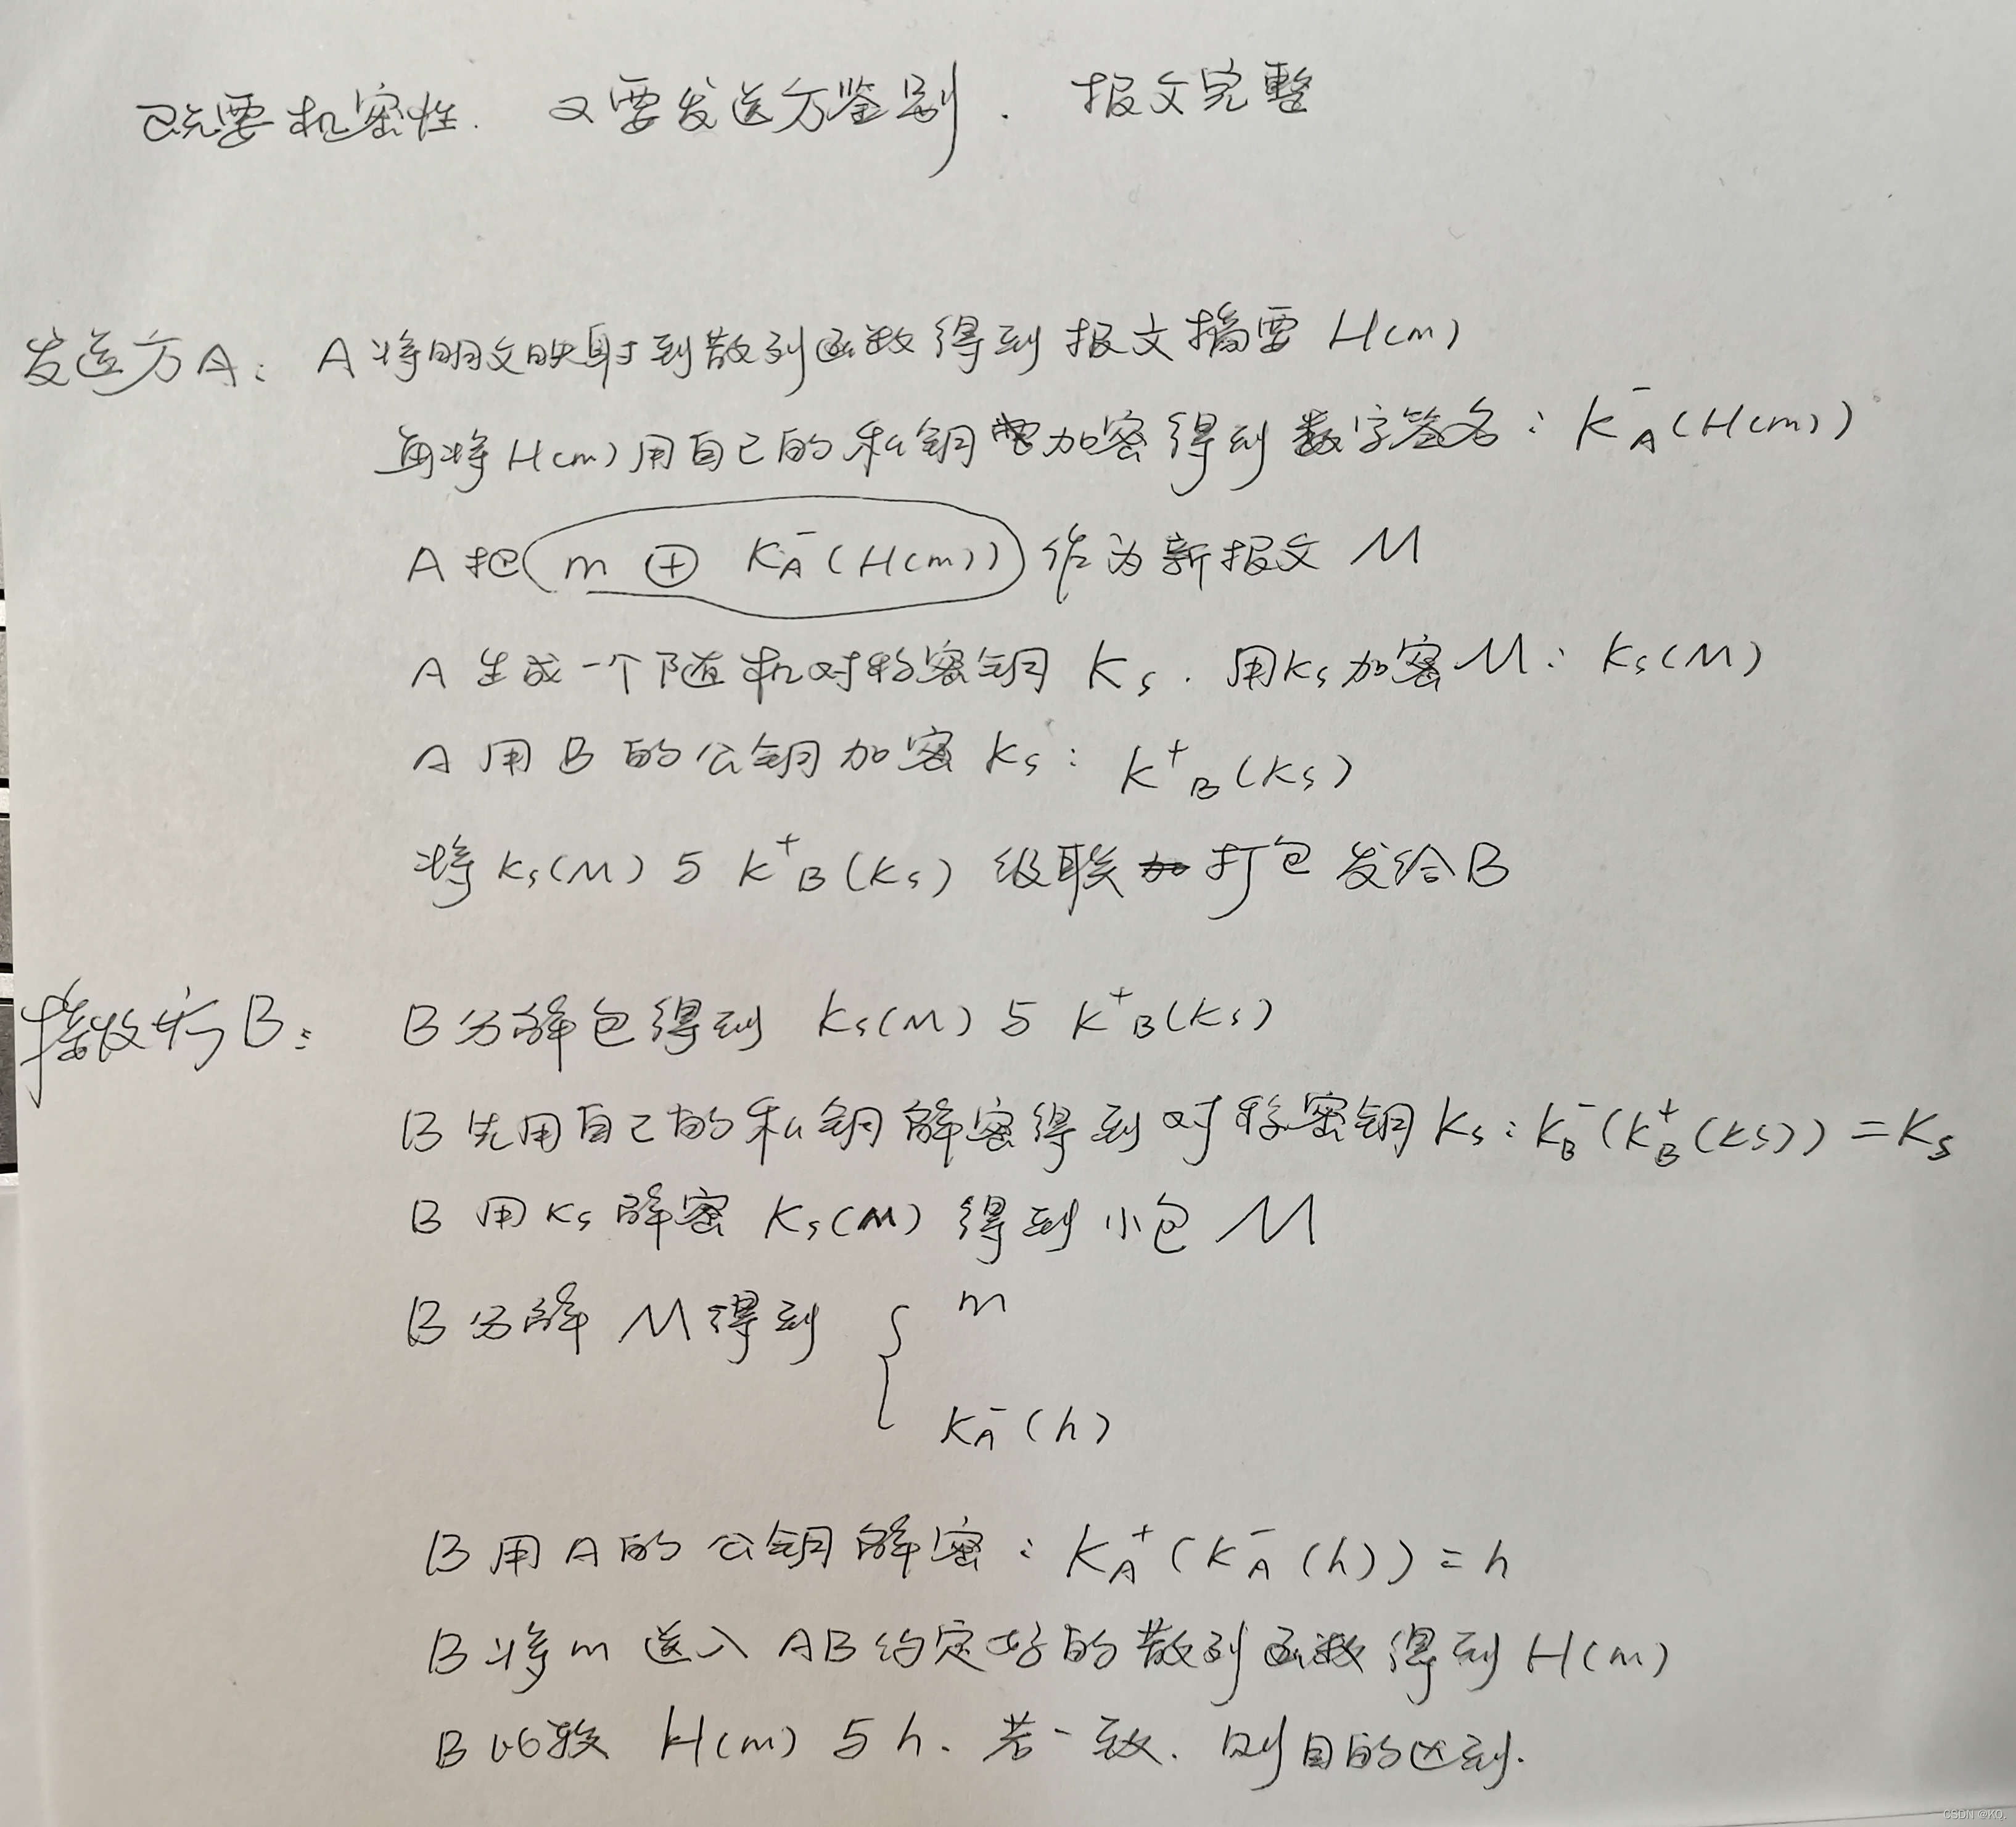 既要机密性. 又要发送方鉴别. 报文完整
发送方A: A将明文映射到散列函数得到报文摘要 H(m)
再将H(m)用自己的私钥加密得到数字签名: K⁻A(H(m))
A把 m ⊕ K⁻A(H(m)) 作为新报文 M
A生成一个随机对称密钥 Ks. 用Ks加密M: Ks(M)
A用B的公钥加密Ks: K⁺B(Ks)
将Ks(M)与K⁺B(Ks)级联打包发给B
接收方B: B分解包得到 Ks(M)与K⁺B(Ks)
B先用自己的私钥解密得到对称密钥Ks: K⁻B(K⁺B(Ks))=Ks
B用Ks解密Ks(M)得到小包M
B分解M得到 { m
K⁻A(h)
B用A的公钥解密: K⁺A(K⁻A(h))=h
B将m送入AB约定好的散列函数得到H(m)
B比较 H(m)与h. 若一致. 则目的达到.
CSDN @KQ.